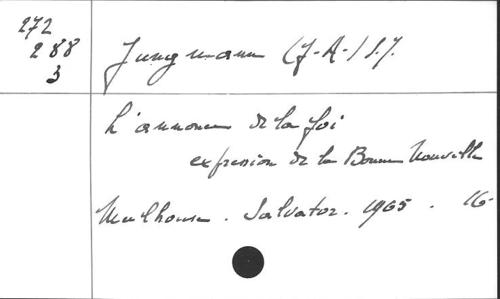 272
288
3
Jungmann (J.-A.) S.J.
L'annonce de la foi
expression de la Bonne Nouvelle
Mulhouse. Salvator. 1965. 16-